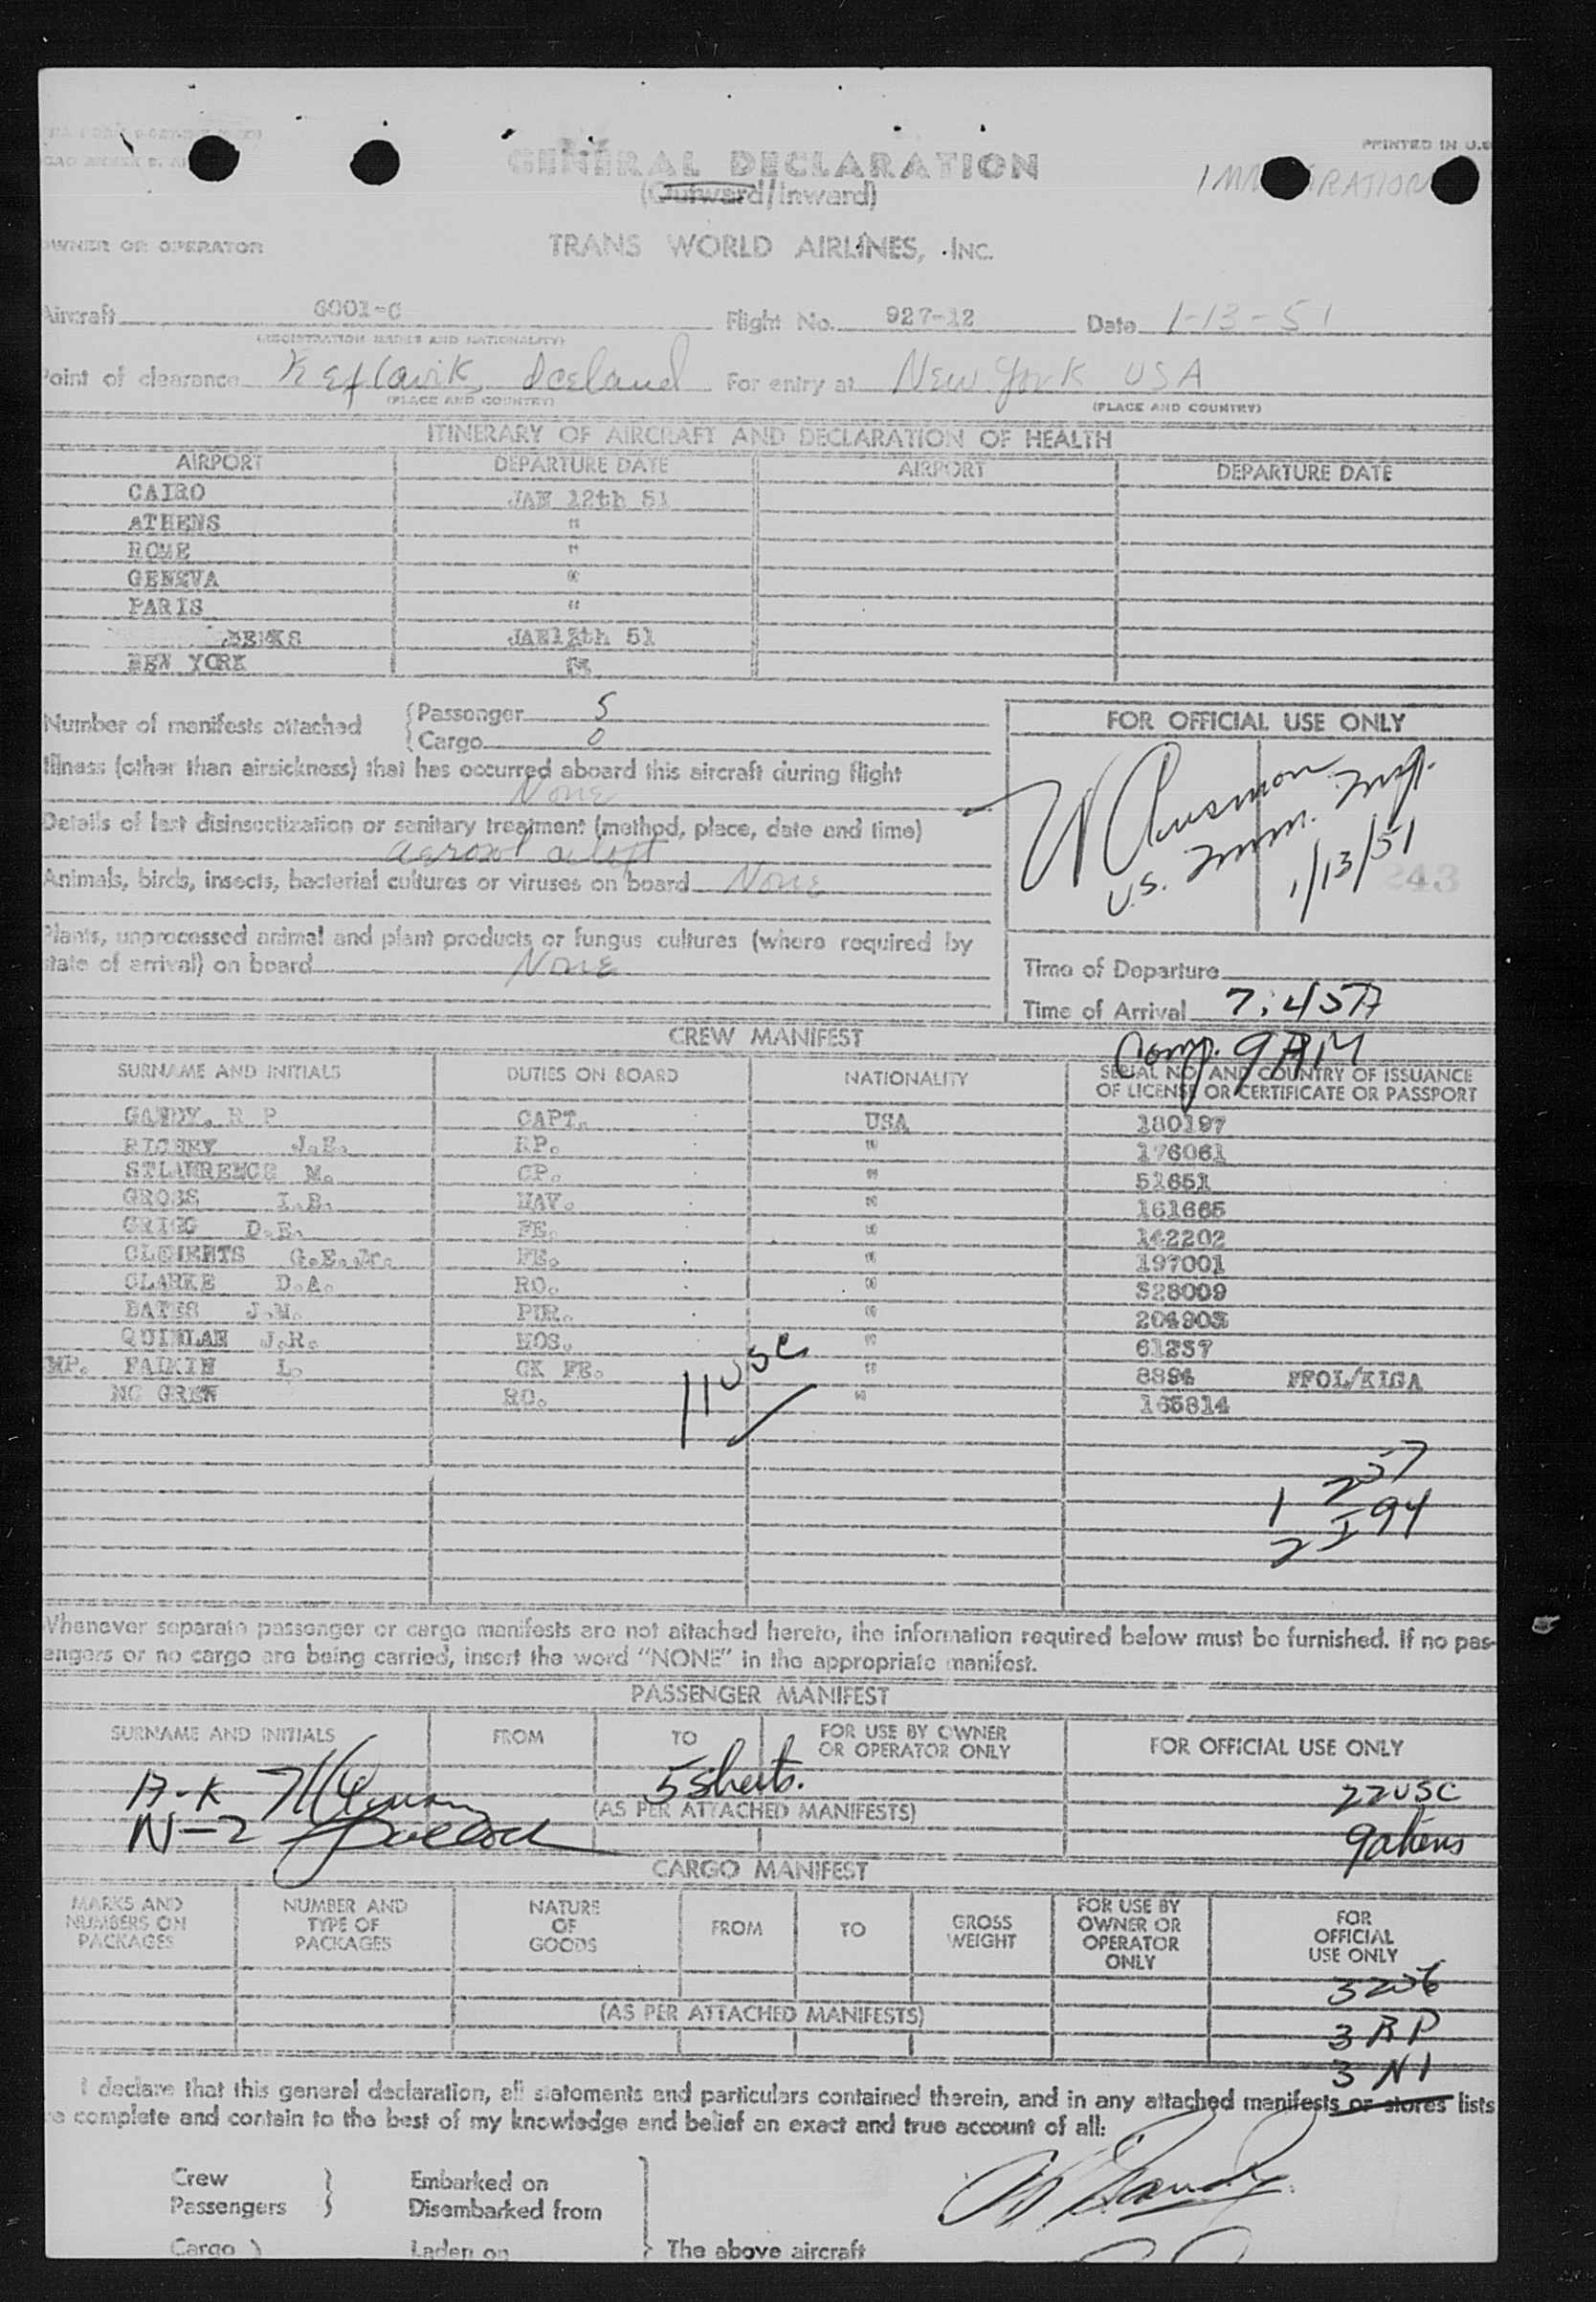 GENERAL DECLARATION
(Outward/Inward)
PRINTED IN U.S
OWNER OR OPERATOR
TRANS WORLD AIRLINES, INC.
Aircraft 6001-C Flight No. 927-12 Date 1-13-51
(REGISTRATION MARKS AND NATIONALITY)
Point of clearance Keflavik, Iceland For entry at New York USA
(PLACE AND COUNTRY) (PLACE AND COUNTRY)
ITINERARY OF AIRCRAFT AND DECLARATION OF HEALTH
AIRPORT DEPARTURE DATE AIRPORT DEPARTURE DATE
CAIRO JAN 12th 51
ATHENS "
ROME "
GENEVA "
PARIS "
JAN 51
NEW YORK
Number of manifests attached Passenger 5
Cargo 0
FOR OFFICIAL USE ONLY
Illness (other than airsickness) that has occurred aboard this aircraft during flight
None
Details of last disinsectization or sanitary treatment (method, place, date and time)
aerosol aloft
Animals, birds, insects, bacterial cultures or viruses on board None
U.S. Imm. Insp.
1/13/51
243
Plants, unprocessed animal and plant products or fungus cultures (where required by
state of arrival) on board None
Time of Departure
Time of Arrival 7:45A
Comp. 9AM
CREW MANIFEST
SURNAME AND INITIALS DUTIES ON BOARD NATIONALITY SERIAL NO. AND COUNTRY OF ISSUANCE
OF LICENSE OR CERTIFICATE OR PASSPORT
GANDY, R P CAPT. USA 180197
RICHEY J.E. RP. " 176061
STLAWRENCE M. CP. " 51651
GROSS I.B. NAV. " 161665
GRIGG D.E. FE. " 142202
CLEMENTS G.E.Jr. FE. " 197001
CLARKE D.A. RO. " 328009
BATES J.M. PUR. " 204903
QUINLAN J.R. HOS. " 61237
L. CK FE. " 8894
MC GREW RO. " 165814
11 USC
257
1 I 94
2
Whenever separate passenger or cargo manifests are not attached hereto, the information required below must be furnished. If no pas-
engers or no cargo are being carried, insert the word "NONE" in the appropriate manifest.
PASSENGER MANIFEST
SURNAME AND INITIALS FROM TO FOR USE BY OWNER
OR OPERATOR ONLY FOR OFFICIAL USE ONLY
A-K
5 sheets.
22 USC
(AS PER ATTACHED MANIFESTS)
N-2
9 aliens
CARGO MANIFEST
MARKS AND
NUMBERS ON
PACKAGES
NUMBER AND
TYPE OF
PACKAGES
NATURE
OF
GOODS
FROM
TO
GROSS
WEIGHT
FOR USE BY
OWNER OR
OPERATOR
ONLY
FOR
OFFICIAL
USE ONLY
(AS PER ATTACHED MANIFESTS)
3 RP
3 NI
I declare that this general declaration, all statements and particulars contained therein, and in any attached manifests or stores lists
e complete and contain to the best of my knowledge and belief an exact and true account of all:
Crew
Passengers
Embarked on
Disembarked from
Cargo
Laden on
The above aircraft